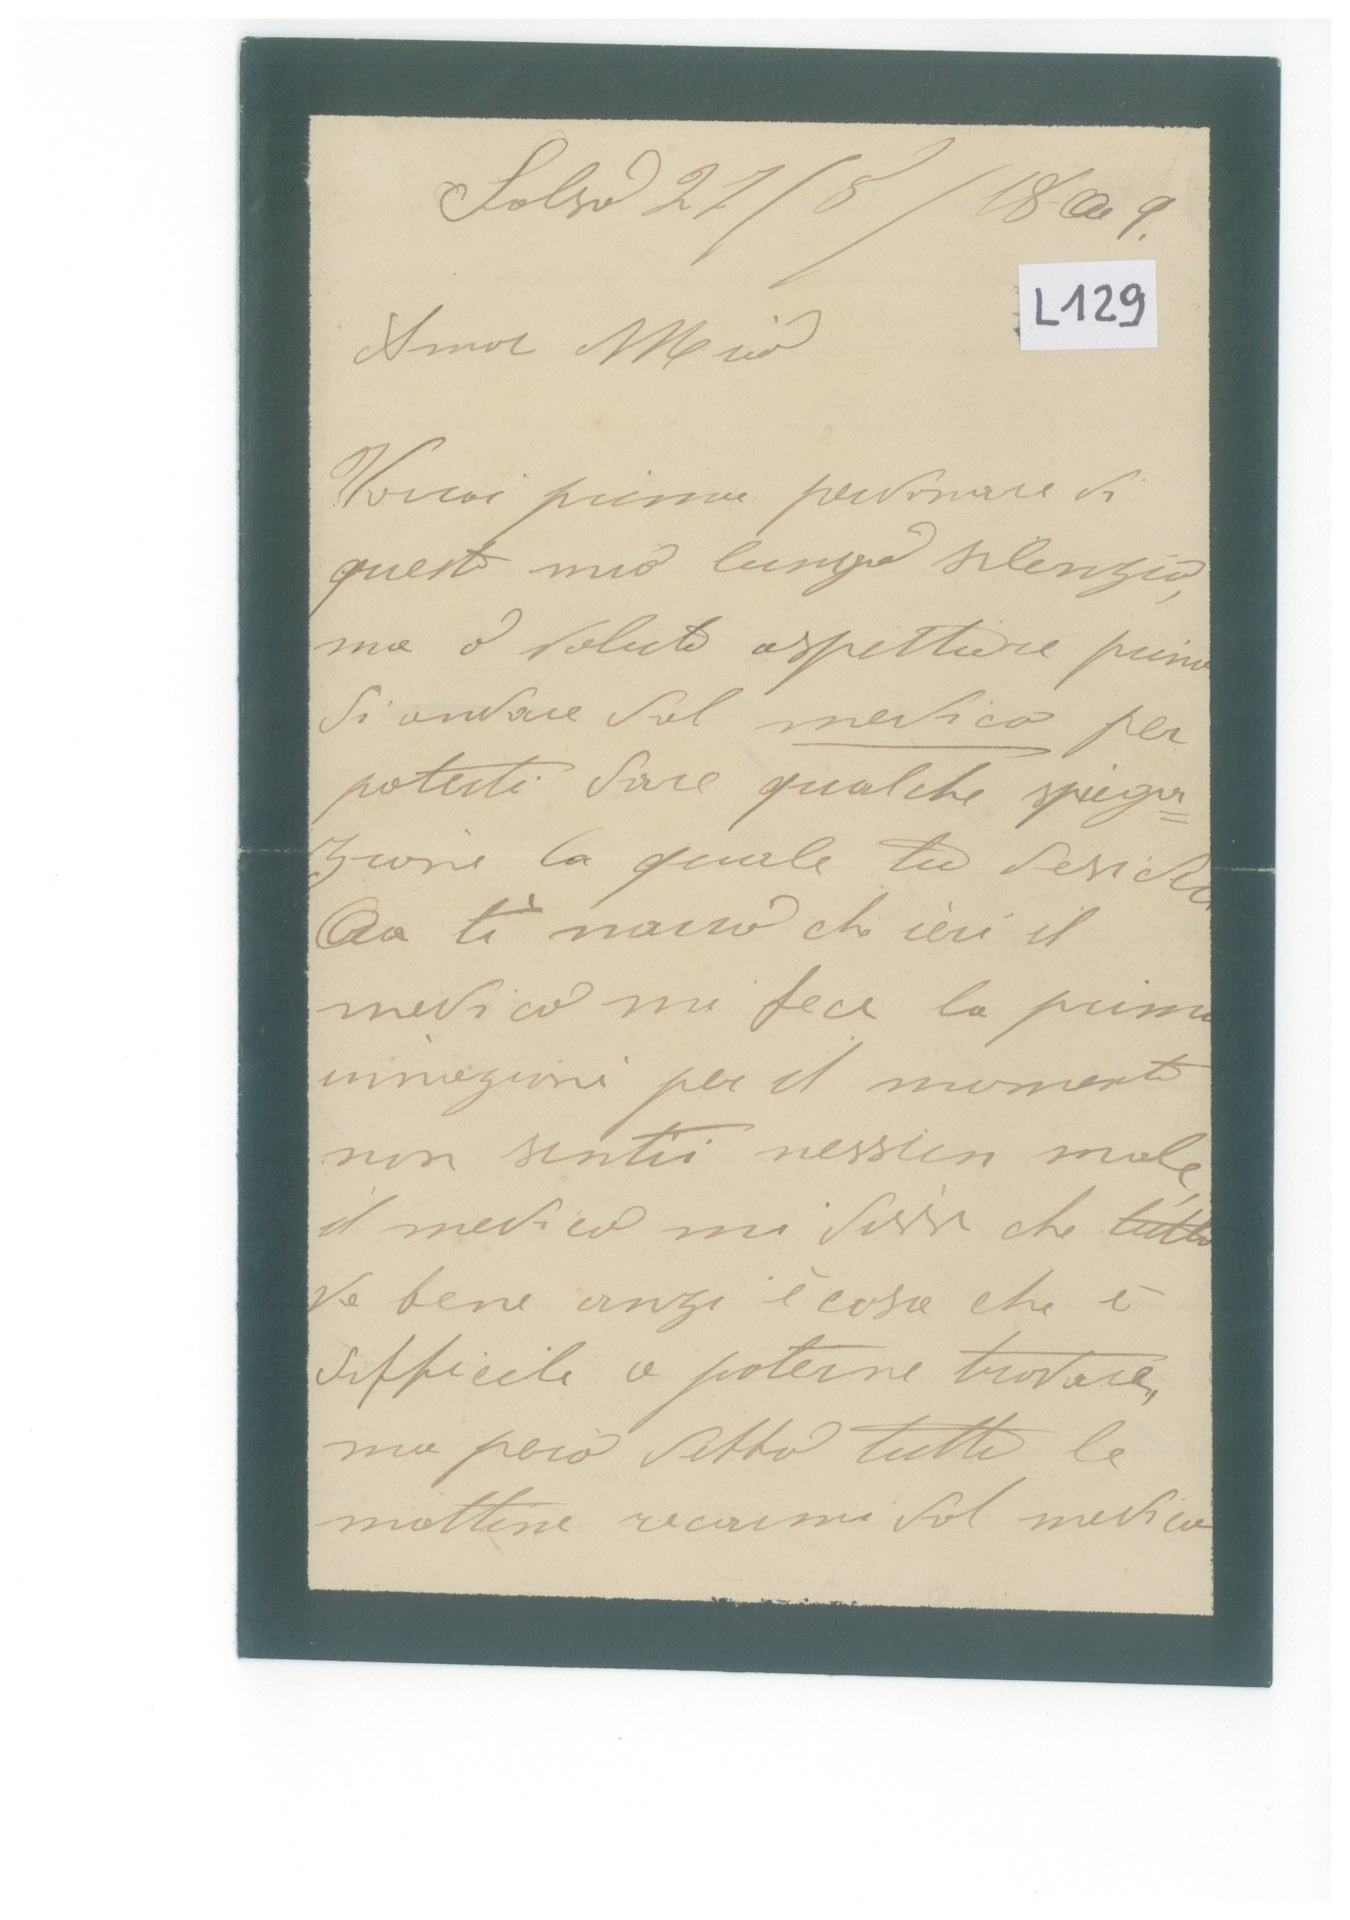 Salsò 27/8/1899.
L129
Amor Mio
Vorrai prima perdonare di
questo mio lungo silenzio,
ma ò voluto aspettare prima
di andare dal medico per
poterti dare qualche spiega=
zione la quale tu desideri
Ora ti narrò che ieri il
medico mi fece la prima
inniezioni per il momento
non sentii nessun male,
il medico mi disse che tutto
va bene anzi è cosa che è
difficile a poterne trovare,,
ma però debbo tutte le
mattine recarmi dal medico